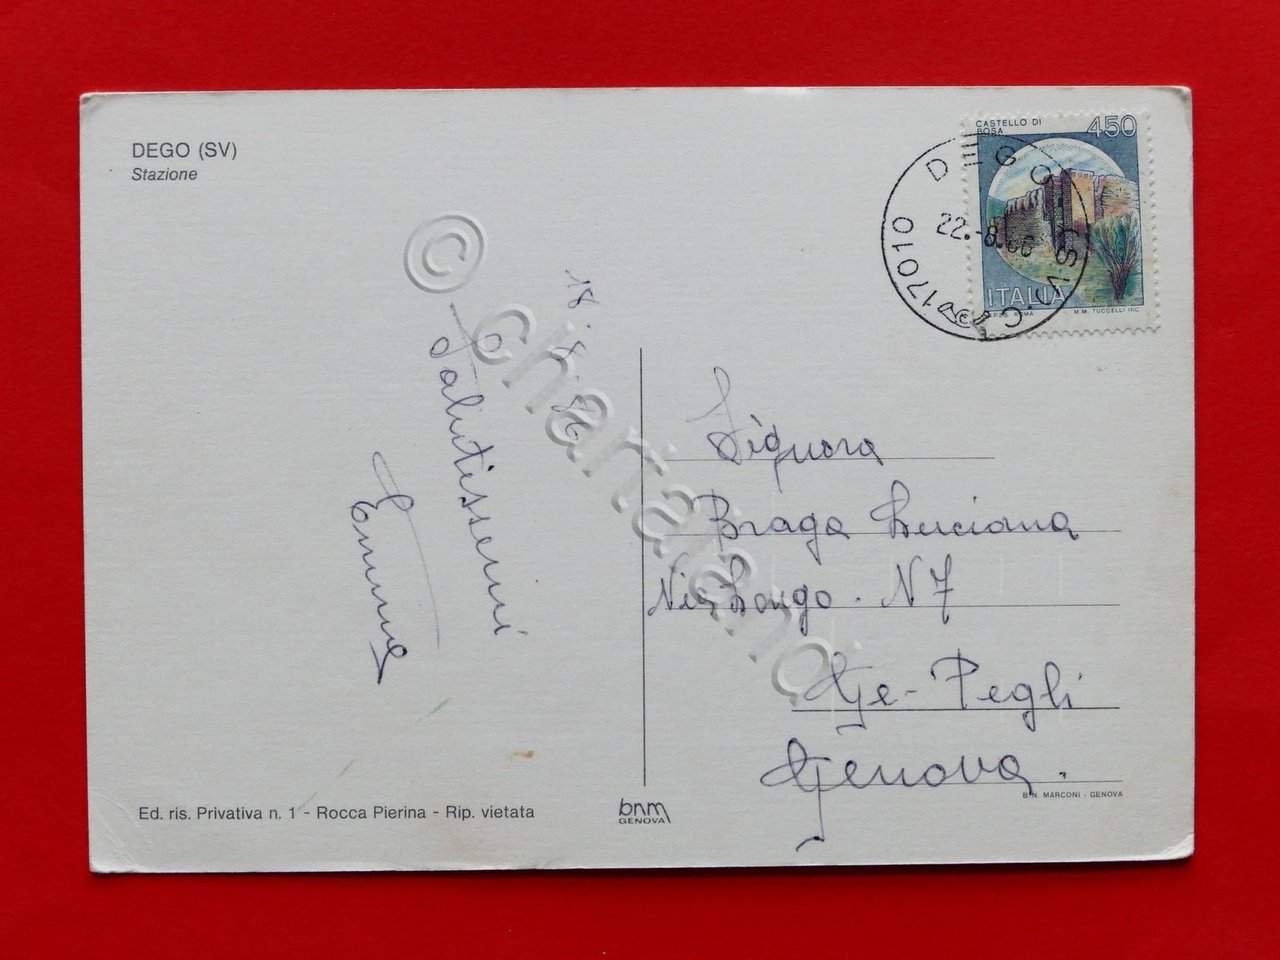 DEGO (SV)
Stazione
CASTELLO DI
BOSA
450
ITALIA
I.P.Z.S. ROMA
M.M. TUCCELLI INC.
17010 DEGO (SV)
22.-8.86
18.8.86
Salutissimi
Emma
Signora
Braga Luciana
Via Longo. N 7
Ge-Pegli
Genova.
Ed. ris. Privativa n. 1 - Rocca Pierina - Rip. vietata
bnm
GENOVA
B.N. MARCONI - GENOVA
© chartaland